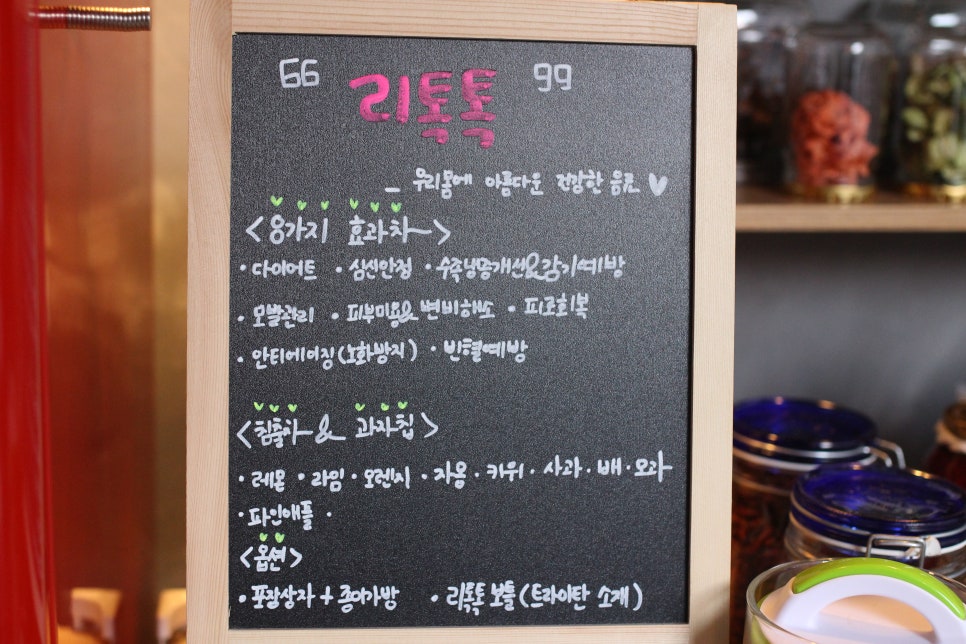 66 리톡톡 99
- 우리몸에 아름다운 건강한 음료
<8가지 효과차>
· 다이어트 · 심신안정 · 수족냉증개선&감기예방
· 모발관리 · 피부미용& 변비해소 · 피로회복
· 안티에이징(노화방지) · 빈혈예방
<침출차 & 과자칩>
· 레몬 · 라임 · 오렌지 · 자몽 · 키위 · 사과 · 배 · 모과
· 파인애플 ·
<옵션>
· 포장상자 + 종이가방 · 리톡톡 보틀(트라이탄 소개)